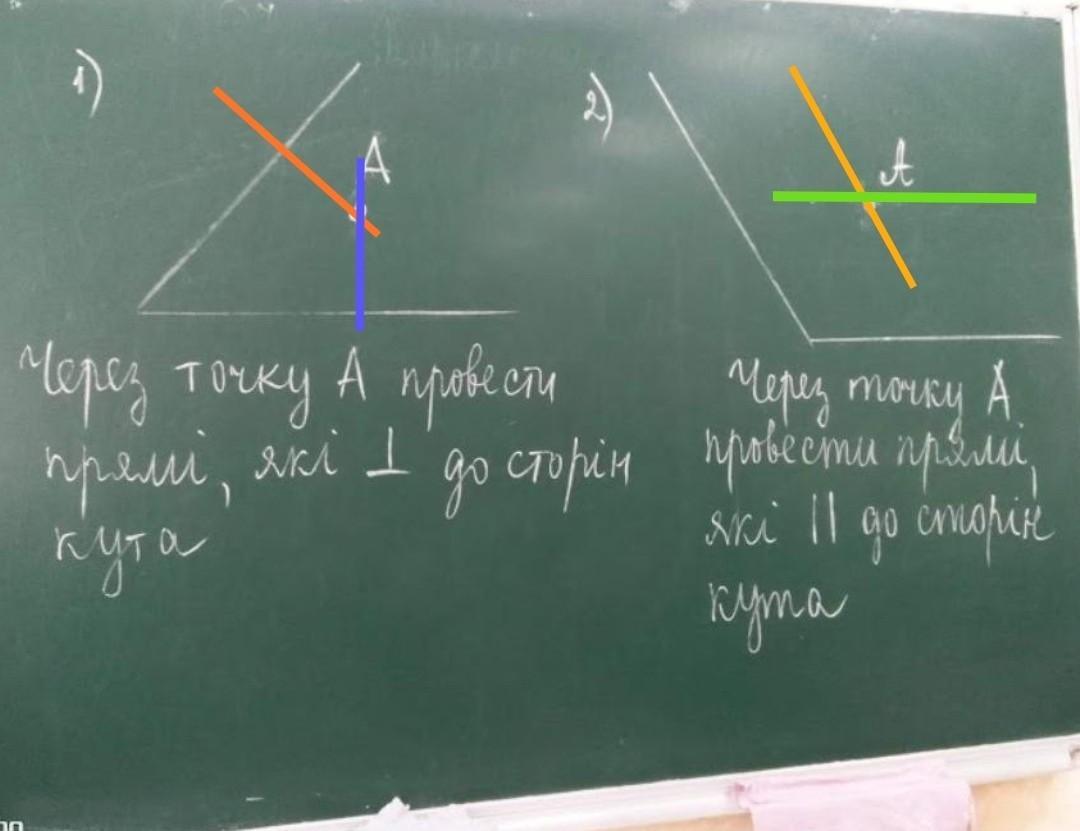 1)
A
Через точку А провести
прямі, які ⊥ до сторін
кута
2)
A
Через точку А
провести прямі,
які || до сторін
кута